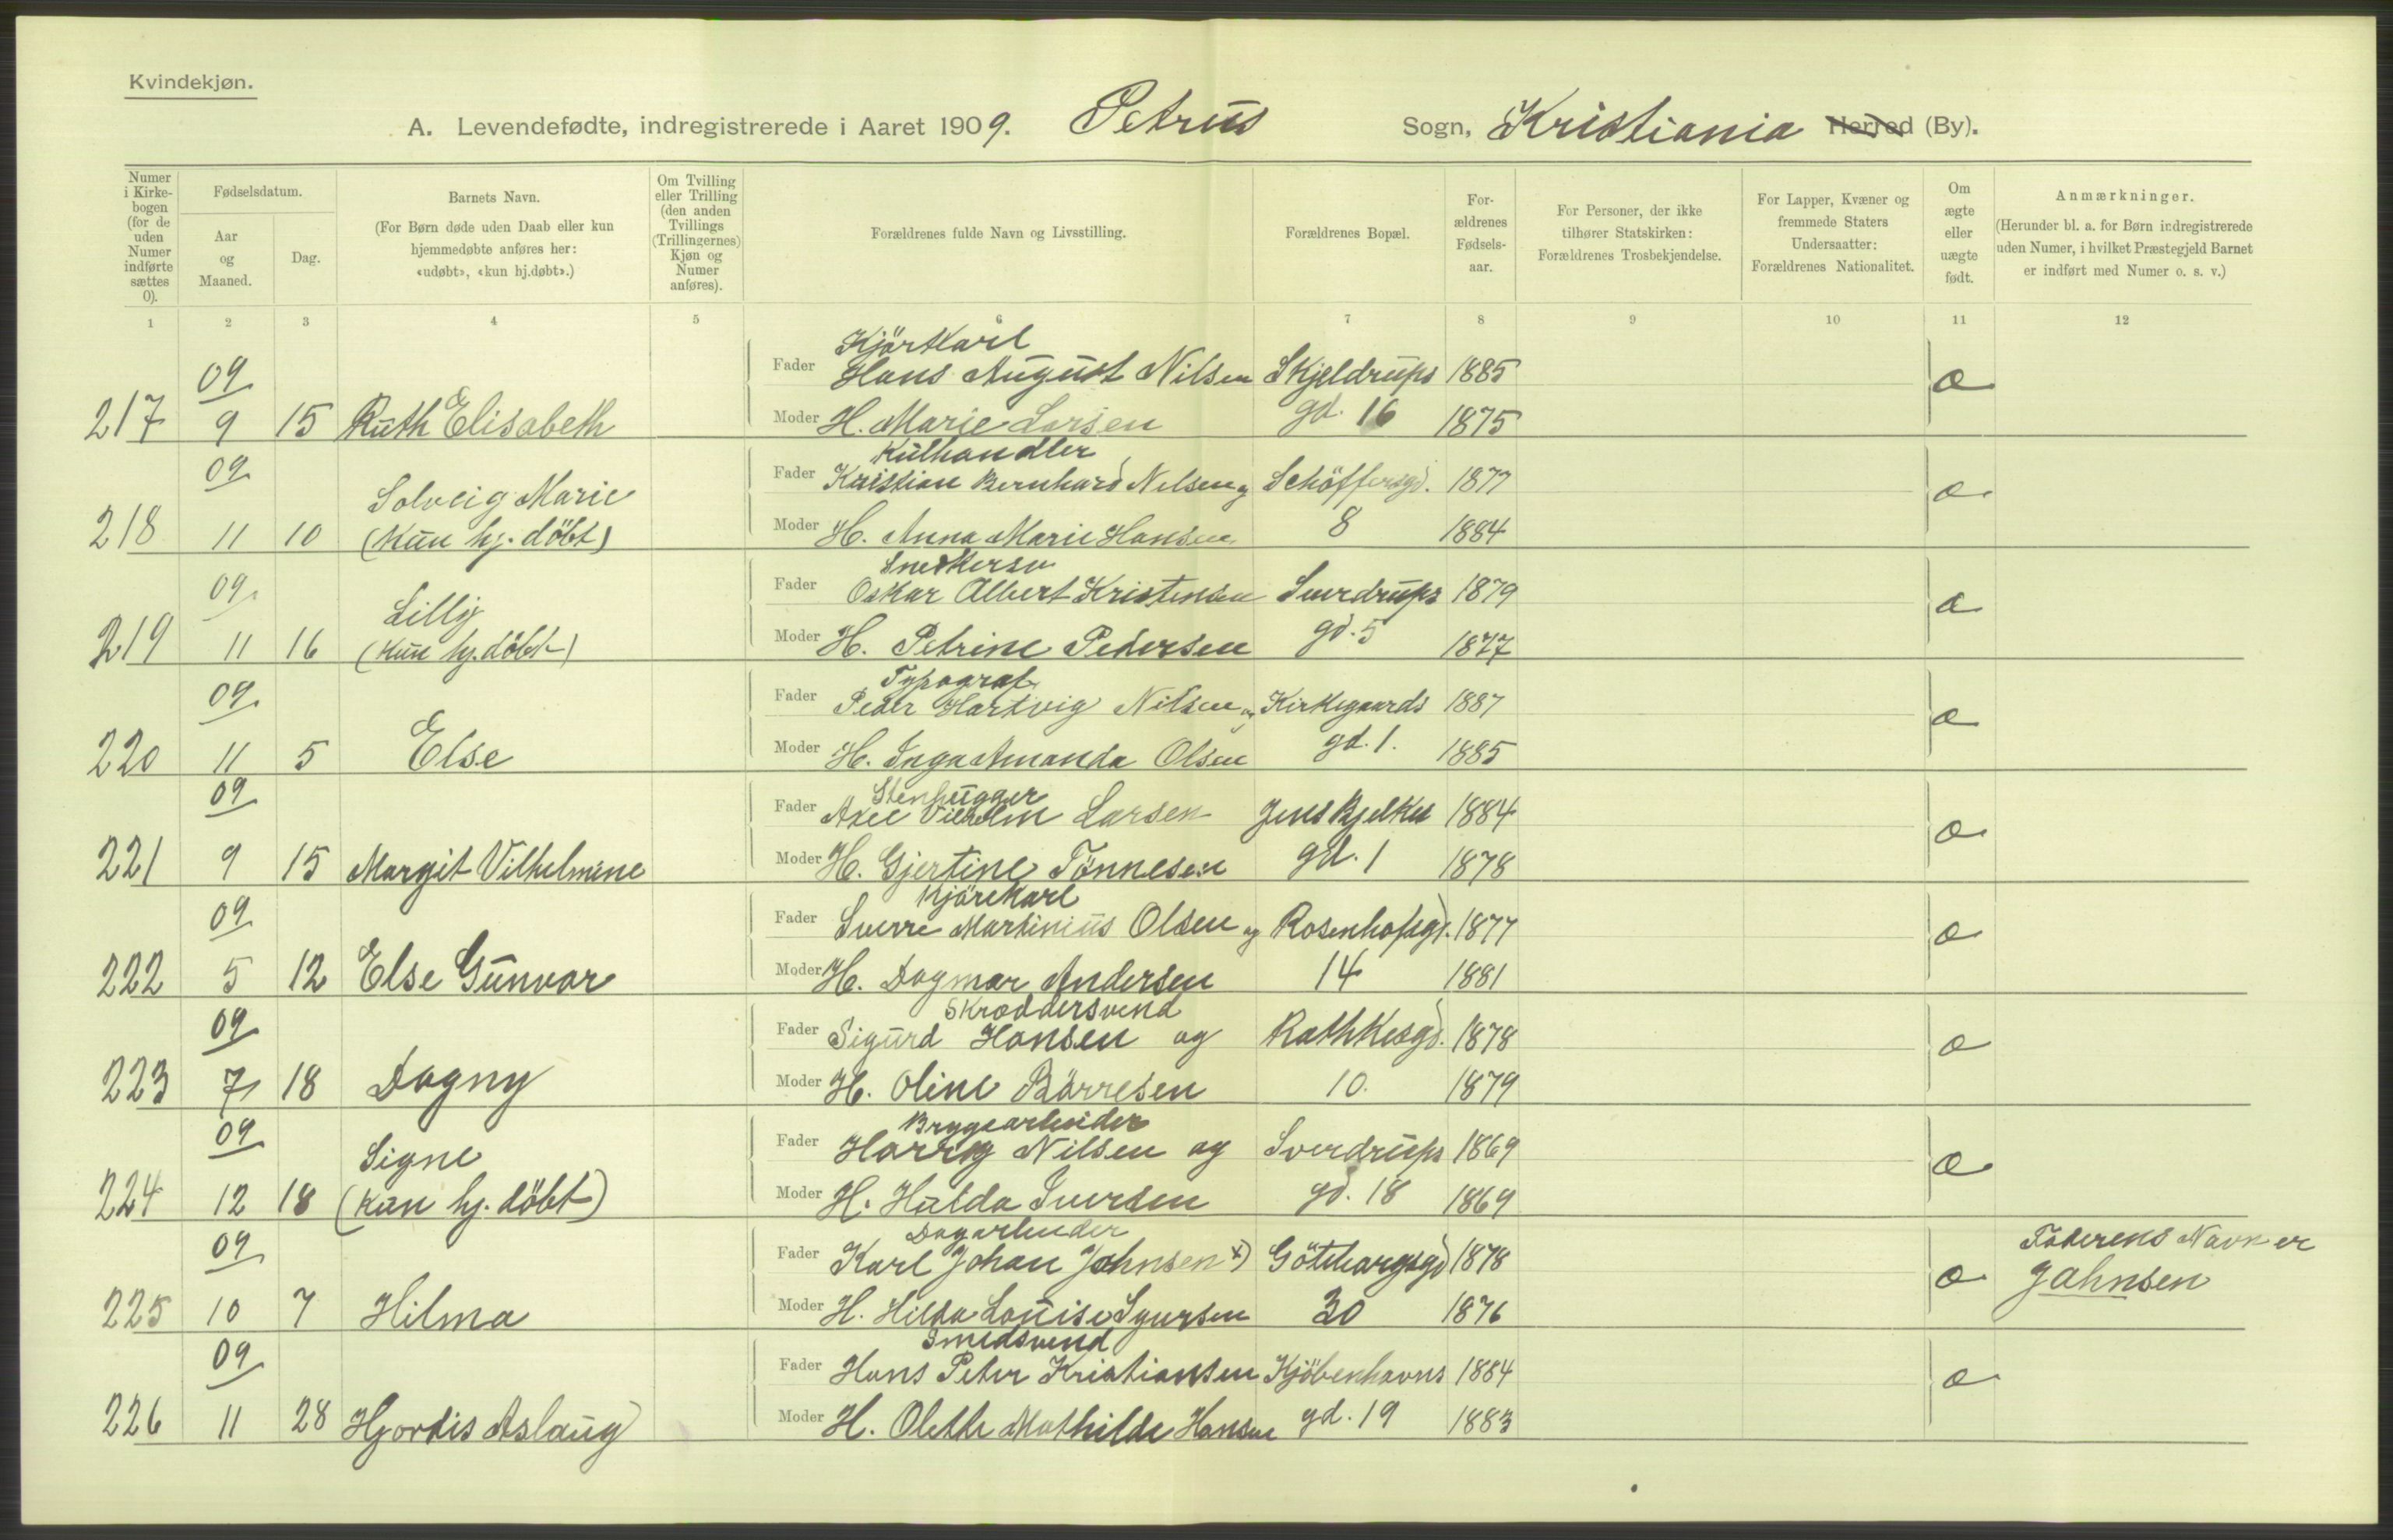 Kvindekjøn.
A. Levendefødte, indregistrerede i Aaret 1909. Petrus Sogn, Kristiania Herred (By).
Numer i Kirkebogen (for de uden Numer indførte sættes 0).
Fødselsdatum.
Aar og Maaned.
Dag.
Barnets Navn.
(For Børn døde uden Daab eller kun hjemmedøbte anføres her: «udøbt», «kun hj.døbt».)
Om Tvilling eller Trilling (den anden Tvillings (Trillingernes) Kjøn og Numer anføres).
Forældrenes fulde Navn og Livsstilling.
Forældrenes Bopæl.
Forældrenes Fødselsaar.
For Personer, der ikke tilhører Statskirken: Forældrenes Trosbekjendelse.
For Lapper, Kvæner og fremmede Staters Undersaatter: Forældrenes Nationalitet.
Om ægte eller uægte født.
Anmærkninger.
(Herunder bl. a. for Børn indregistrerede uden Numer, i hvilket Præstegjeld Barnet er indført med Numer o. s. v.)
1 2 3 4 5 6 7 8 9 10 11 12
Kjörkarl
09 Fader Hans August Nilsen Skjeldrups 1885 æ
217 9 15 Ruth Elisabeth Moder H. Marie Larsen gd. 16 1875
Kulhandler
09 Solveig Marie Fader Kristian Bernhard Nilsen og Schöffersgd. 1877 æ
218 11 10 (kun hj. döbt) Moder H. Anna Marie Hansen 8 1884
Snedkersv
09 Lilly Fader Oskar Albert Kristensen Sverdrups 1879 æ
219 11 16 (kun hj. döbt) Moder H. Petrine Pedersen gd. 5 1877
Typograf
09 Fader Peder Hartvig Nilsen og Kirkegaards 1887 æ
220 11 5 Else Moder H. Inga Amanda Olsen gd. 1. 1885
Stenhugger
09 Fader Axel Vilhelm Larsen Jens Bjelkes 1884 æ
221 9 15 Margit Vilhelmine Moder H. Gjertine Tønnesen gd. 1 1878
Kjörekarl
09 Fader Sverre Martinius Olsen og Rosenhofsgd. 1877 æ
222 5 12 Else Gunvor Moder H. Dagmar Andersen 14 1881
Skræddersvend
09 Fader Sigurd Hansen og Rathkesgd. 1878 æ
223 7 18 Dagny Moder H. Oline Börresen 10. 1879
Bryggearbeider
09 Signe Fader Harry Nilsen og Sverdrups 1869 æ
224 12 18 (kun hj. döbt) Moder H. Hulda Iversen gd. 18 1869
Dagarbeider Faderens Navn er
09 Fader Karl Johan Johnsen x) Göteborgsgd 1878 æ Jahnsen
225 10 7 Hilma Moder H. Hilda Louise Syversen 30 1876
Smedsvend
09 Fader Hans Peter Kristiansen Kjöbenhavns 1884 æ
226 11 28 Hjordis Aslaug Moder H. Olette Mathilde Hansen gd. 19 1883